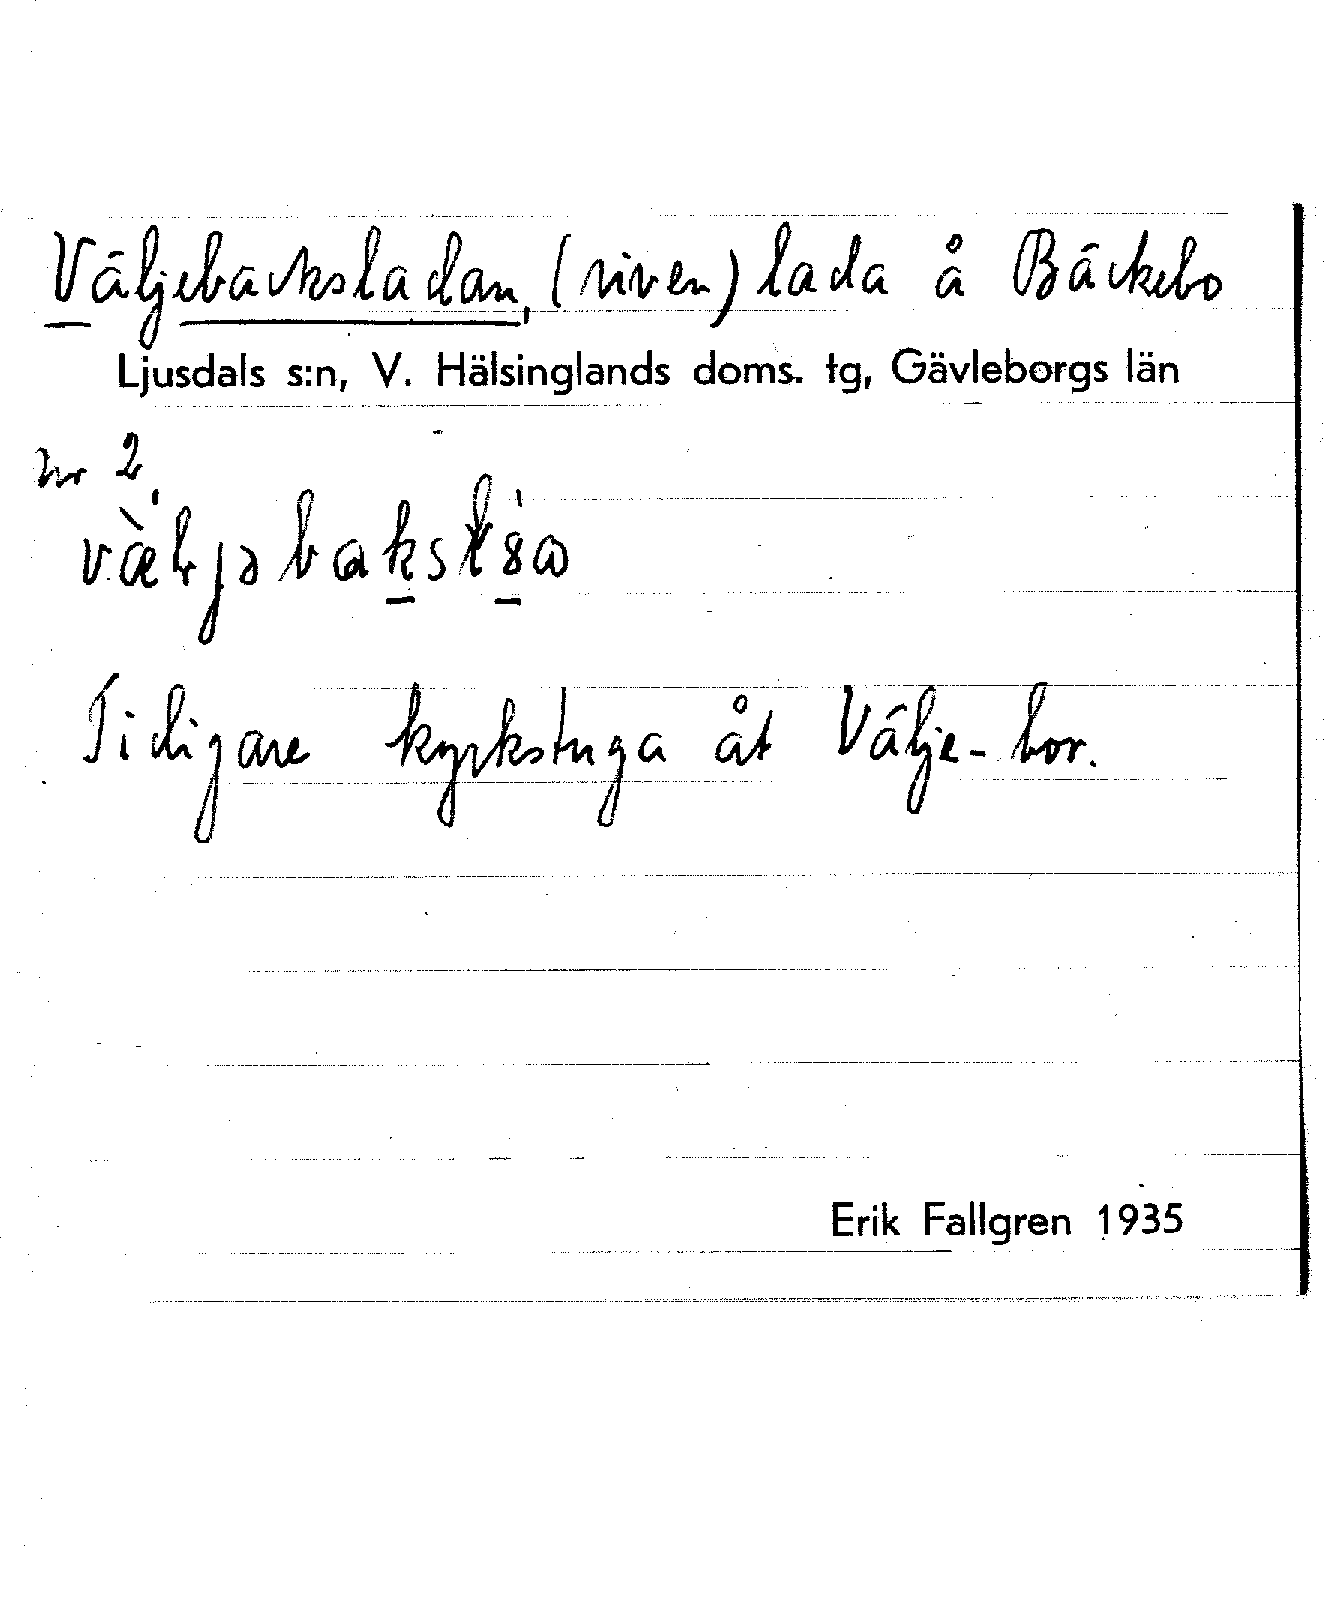 Väljebacksladan, (riven) lada å Bäckebo
Ljusdals s:n, V. Hälsinglands doms. tg, Gävleborgs län
nr 2
Tidigare kyrkstuga åt Välje-bor.
Erik Fallgren 1935